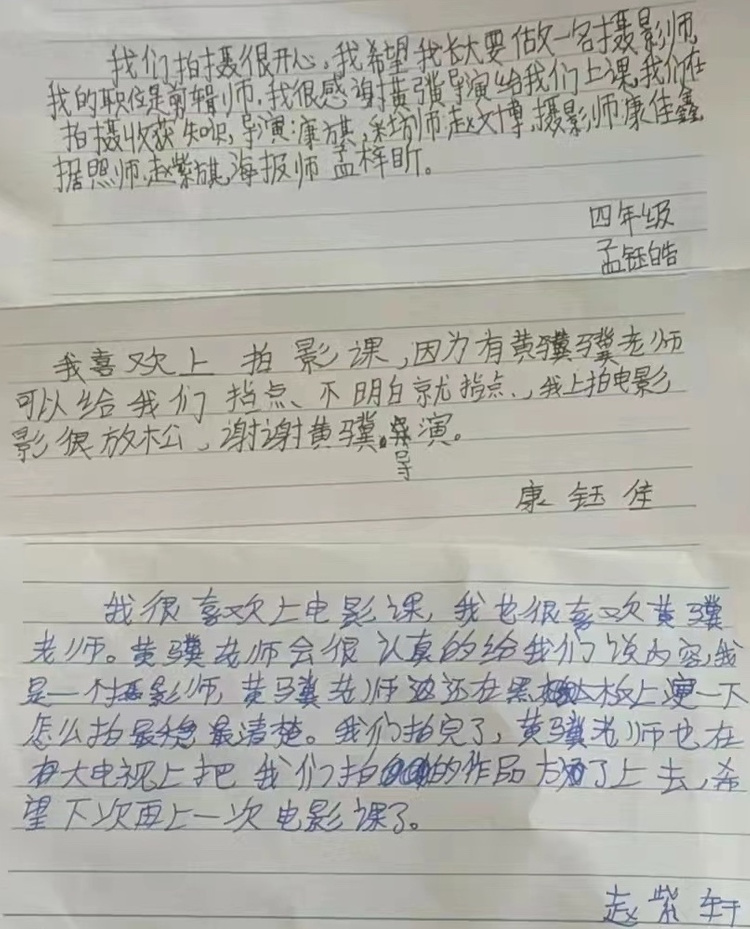 我们拍摄很开心。我希望我长大要做一名摄影师,
我的职位是剪辑师,我很感谢黄骥导演给我们上课,我们在
拍摄收获知识,导演:康旗,师:赵文博,摄影师:康佳鑫,
据照师,赵紫旗,海报师 孟梓昕。
四年级
孟钰皓
我喜欢上 拍影课,因为有黄骥骥老师
可以给我们 指点、不明白就指点、,我上拍电影
影很放松,谢谢黄骥导演。
康钰佳
我很喜欢上电影课,我也很喜欢黄骥
老师。黄骥老师会很认真的给我们说内容,我
是一个摄影师,黄骥老师还在黑板上演一下
怎么拍最稳最清楚。我们拍完了,黄骥老师也在
大电视上把我们拍的作品放了上去,希
望下次再上一次电影课了。
赵紫轩